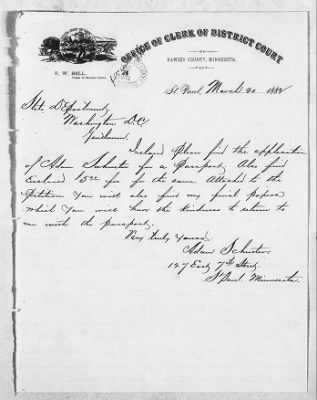 OFFICE OF CLERK OF DISTRICT COURT
OF
RAMSEY COUNTY, MINNESOTA.
R. W. BELL,
St. Paul, March 20 1882
State Department
Washington D.C
Gentlemen
Inclosed Please find the application
of Adam Schuster for a Passport. Also find
Enclosed $5.00 fee for the same. Attached to the
Petition You will also find my final papers
which You will have the kindness to return to
me with the passport.
Very truly Yours
Adam Schuster
127 East 7th Street
St Paul Minnesota